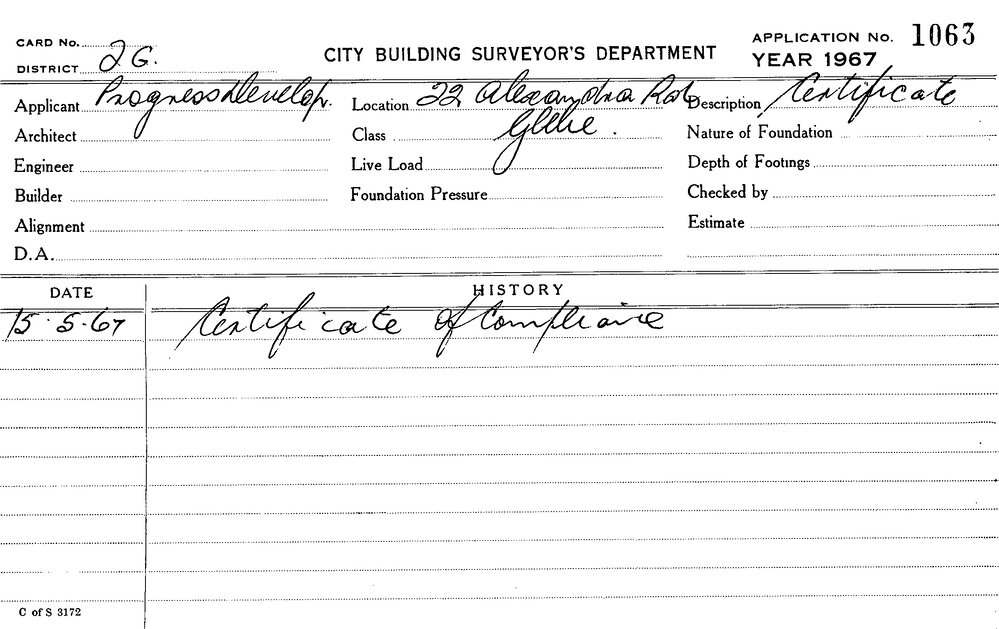 CARD No.
DISTRICT 2G.
CITY BUILDING SURVEYOR'S DEPARTMENT
APPLICATION No. 1063
YEAR 1967
Applicant Progress Develop.
Location 22 Alexandra Rd
Glebe.
Description Certificate
Architect
Class
Nature of Foundation
Engineer
Live Load
Depth of Footings
Builder
Foundation Pressure
Checked by
Alignment
Estimate
D.A.
DATE
HISTORY
15.5.67 Certificate of Compliance
C of S 3172